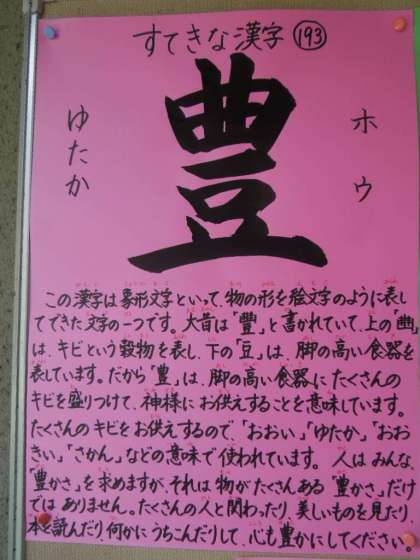 すてきな漢字 193
豊
ホウ
ゆたか
この漢字は象形文字といって、物の形を絵文字のように表し
てできた文字の一つです。大昔は「豐」と書かれていて、上の「𠁳」
は、キビという穀物を表し、下の「豆」は、脚の高い食器を
表しています。だから「豊」は、脚の高い食器にたくさんの
キビを盛りつけて、神様にお供えすることを意味しています。
たくさんのキビをお供えするので、「おおい」「ゆたか」「おお
きい」「さかん」などの意味で使われています。人はみんな、
豊かさ"を求めますが、それは物がたくさんある"豊かさ"だけ
ではありません。たくさんの人と関わったり、美しいものを見たり、
本を読んだり、何かにうちこんだりして、心も豊かにしてください。